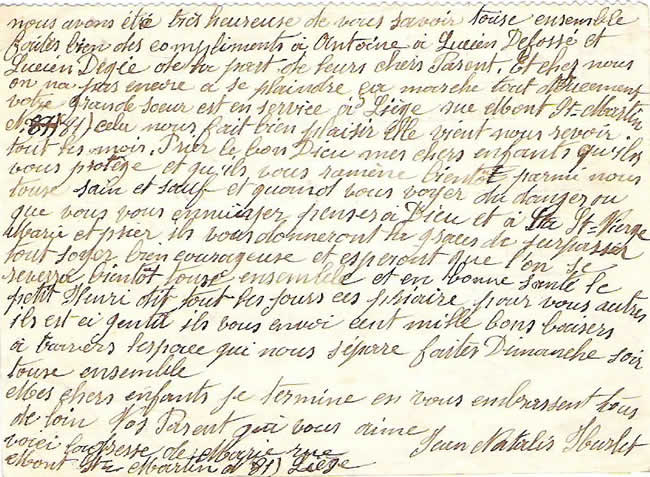 nous avons étée très heureuse de vous savoir touse ensemble
faites bien des compliments à Antoine à Lucien Defossé et
Lucien Degée de la part de leurs chers Parent. Et cher nous
on na pas encore a se plaindre ça marche tout doucement
votre grande sœur est en service à Liège rue Mont St-Martin
N. 81) cela nous fait bien plaisir Elle vient nous revoir
tout les mois. Prier le bon Dieu mes chers enfants qu'ils
vous protège et qu'ils vous ramène bientôt parmi nous
touse sain et sauf et quand vous voyer du danger ou
que vous vous ennuiyer penser à Dieu et à La Ste Vierge
Marie et prier ils vous donneront la graces de surpasser
tout soyer bien courageuse et esperont que l'on se
reverra bientôt touse ensemble et en bonne santé le
petit Henri dit tout les jours ces priaire pour vous autres
ils est ci gentil ils vous envoi cent mille bons baisers
à travers l'espace qui nous séparre faites Dimanche soir
touse ensemble
Mes chers enfants je termine en vous embrassent tous
de loin Vos Parent qui vous aime
Jean Natalis Hurlet
voici l'adresse de Marie rue
Mont Ste Martin N 81) Liège